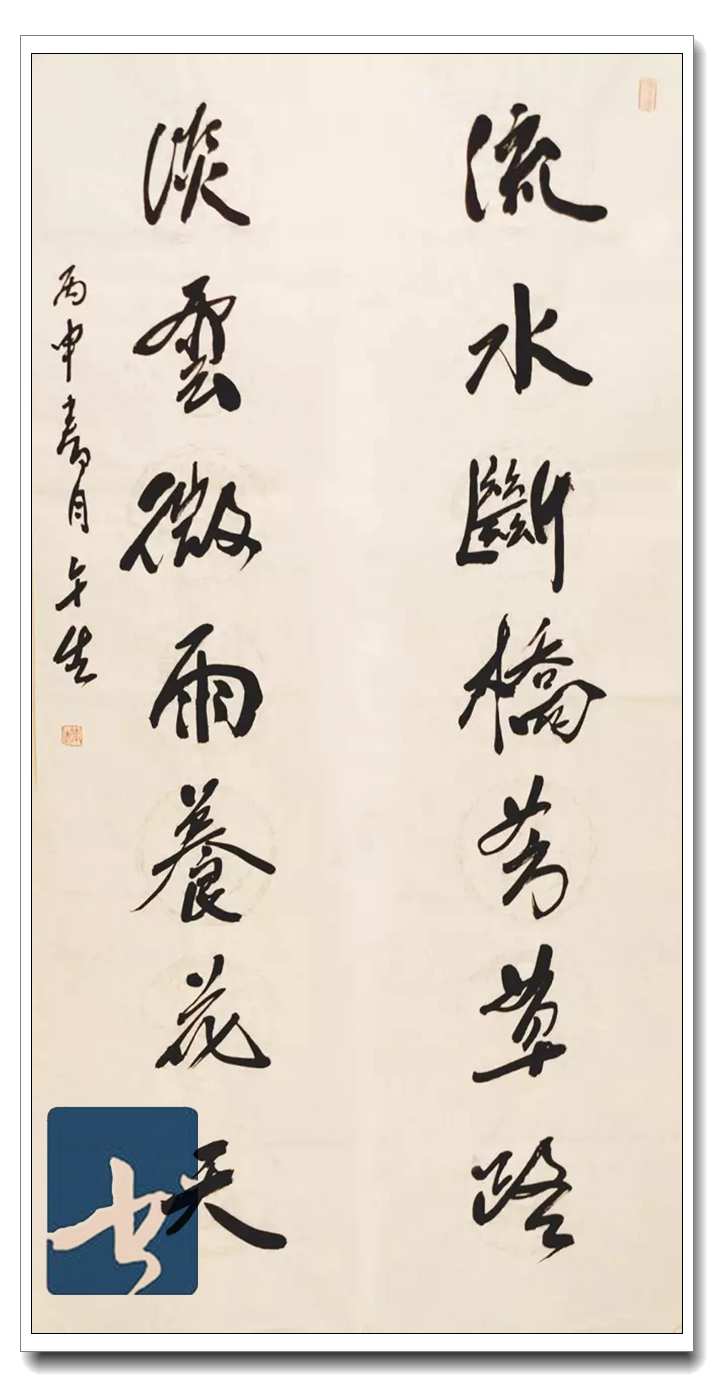 流水斷橋芳草路
淡雲微雨養花天
丙申春月午生